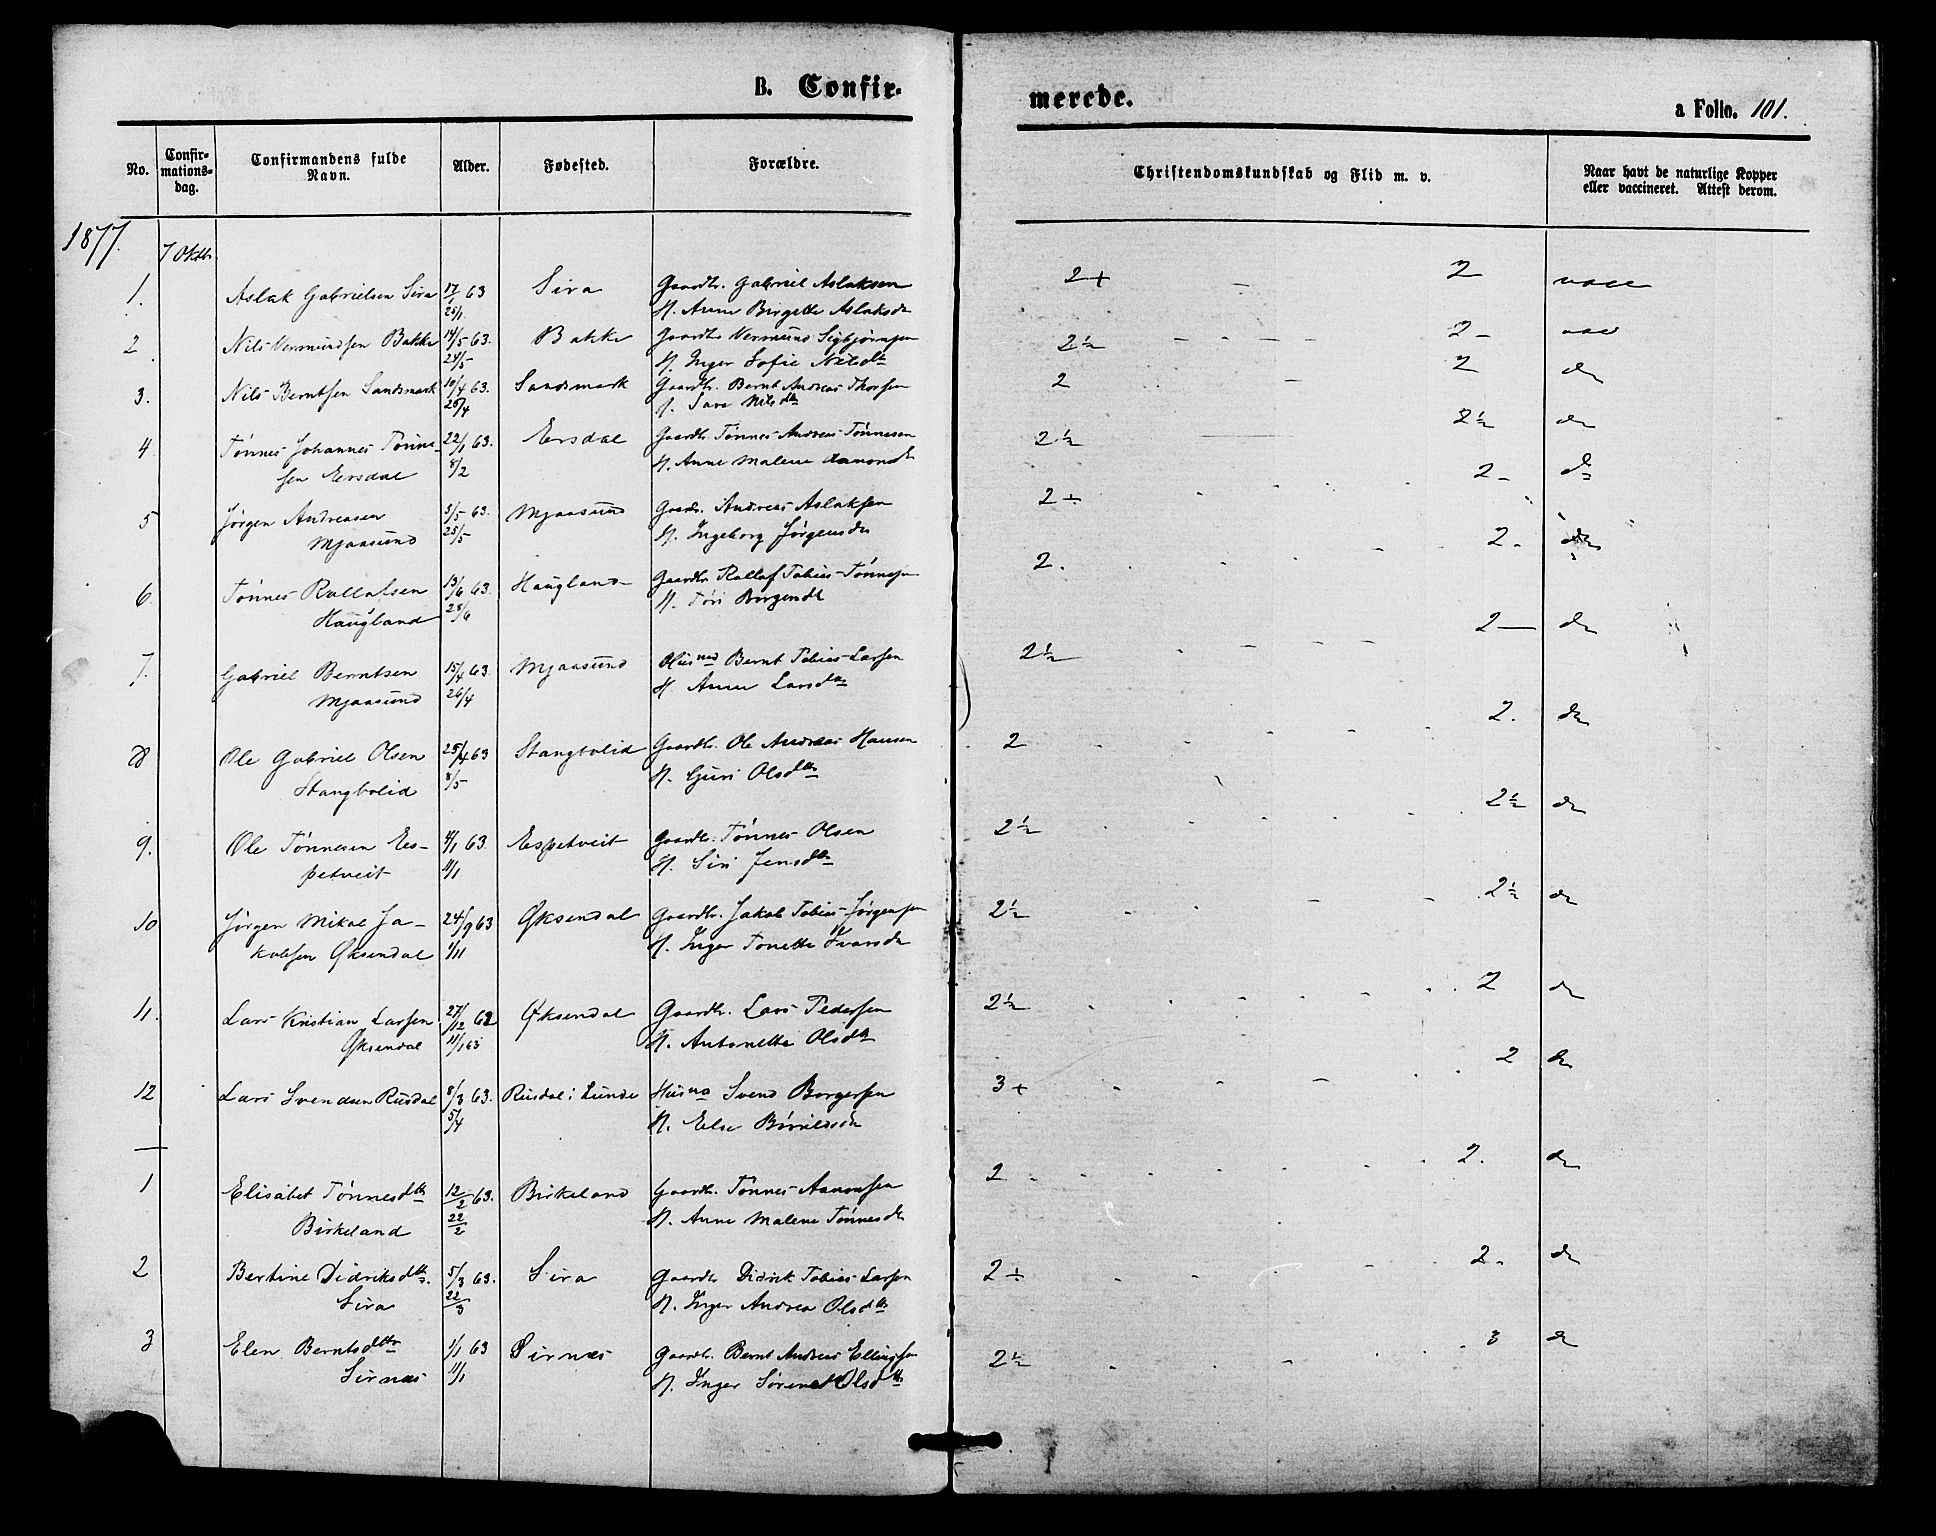 B. Confir-
merede.
a Folio. 101.
No.
Confir-
mations-
dag.
Confirmandens fulde
Navn.
Alder.
Fødested.
Forældre.
Christendomskundskab og Flid m. v.
Naar havt de naturlige Kopper
eller vaccineret. Attest derom.
1877.
7 Oktb.
1. Aslak Gabrielsen Sira 17/1 63 Sira Gaardbr. Gabriel Aslaksen 2+ - 2 vacc
25/1. H. Anne Birgitte Aslaksdr
2. Nils Vermundsen Bakke 14/5 63. Bakke Gaardbr Vermund Sigbjørnsen 2½ - - - - - 2 - vacc
24/5 H. Inger Sofie Nilsdtr
3. Nils Berntsen Sandsmark 10/4 63. Sandsmark Gaardbr. Bernt Andreas Thorsen 2 - 2 do
26/4 H. Sara Nilsdtr
4 Tønnes Johannes Tønne- 22/1 63. Ersdal Gaardbr. Tønnes Andreas Tønnesen 2½ 2½ do
sen Ersdal 8/2 H. Anne Malene Aamondt
5 Jørgen Andreasen 3/5 63. Mjaasund Gaardbr. Andreas Aslaksen 2÷ 2 - do
Mjaasund 25/5 H. Ingeborg Jørgensdr
6 Tønnes Rallafsen 13/6 63. Haugland Gaardbr Rallaf Tobias Tønnesen 2. 2. do
Haugland 28/6 H. Tøri Borgendt
7. Gabriel Berntsen 15/4 63. Mjaasund Husmd Bernt Tobias Larsen 2½ 2 do
Mjaasund 26/4 H. Anne Larsdtr
8 Ole Gabriel Olsen 25/4 63 Stangbolid Gaardbr. Ole Andreas Hansen 2 2. do
Stangbolid 8/5 H. Guri Olsdtr
9. Ole Tønnesen Es- 4/1 63. Espetveit Gaardbr. Tønnes Olsen 2½ 2½ do
petveit 11/1 H. Siri Jensdtr
10 Jørgen Mikal Ja- 24/9 63 Øksendal Gaardbr. Jakob Tobias Jørgensen 2½ 2½ do
kobsen Øksendal 1/11 H. Inger Tonette Ivarsdr
11. Lars Kristian Larsen 27/12 62 Øksendal Gaardbr. Lars Pedersen 2½ 2 do
Øksendal 11/1 63 H. Antonette Olsdtr
12 Lars Svendsen Rusdal 8/3 63. Rusdal i Lunde Husmd Svend Borgersen 3+ 2 do
5/4 H. Else
1 Elisabet Tønnesdtr 12/2 63. Birkeland Gaardbr. Tønnes Aamonsen 2 2. do
Birkeland 22/2 H. Anne Malene Tønnesdr
2 Bertine Didriksdtr. 5/3 63. Sira Gaardbr Didrik Tobias Larsen 2÷ 2. do
Sira 22/3 H. Inger Andrea Olsdtr
3 Elen Berntsdtr 1/1 63 Sirnæs Gaardbr. Bernt Andreas Ellingsen 2½ 3 do
Sirnæs 11/1 H. Inger Sørine Olsdtr